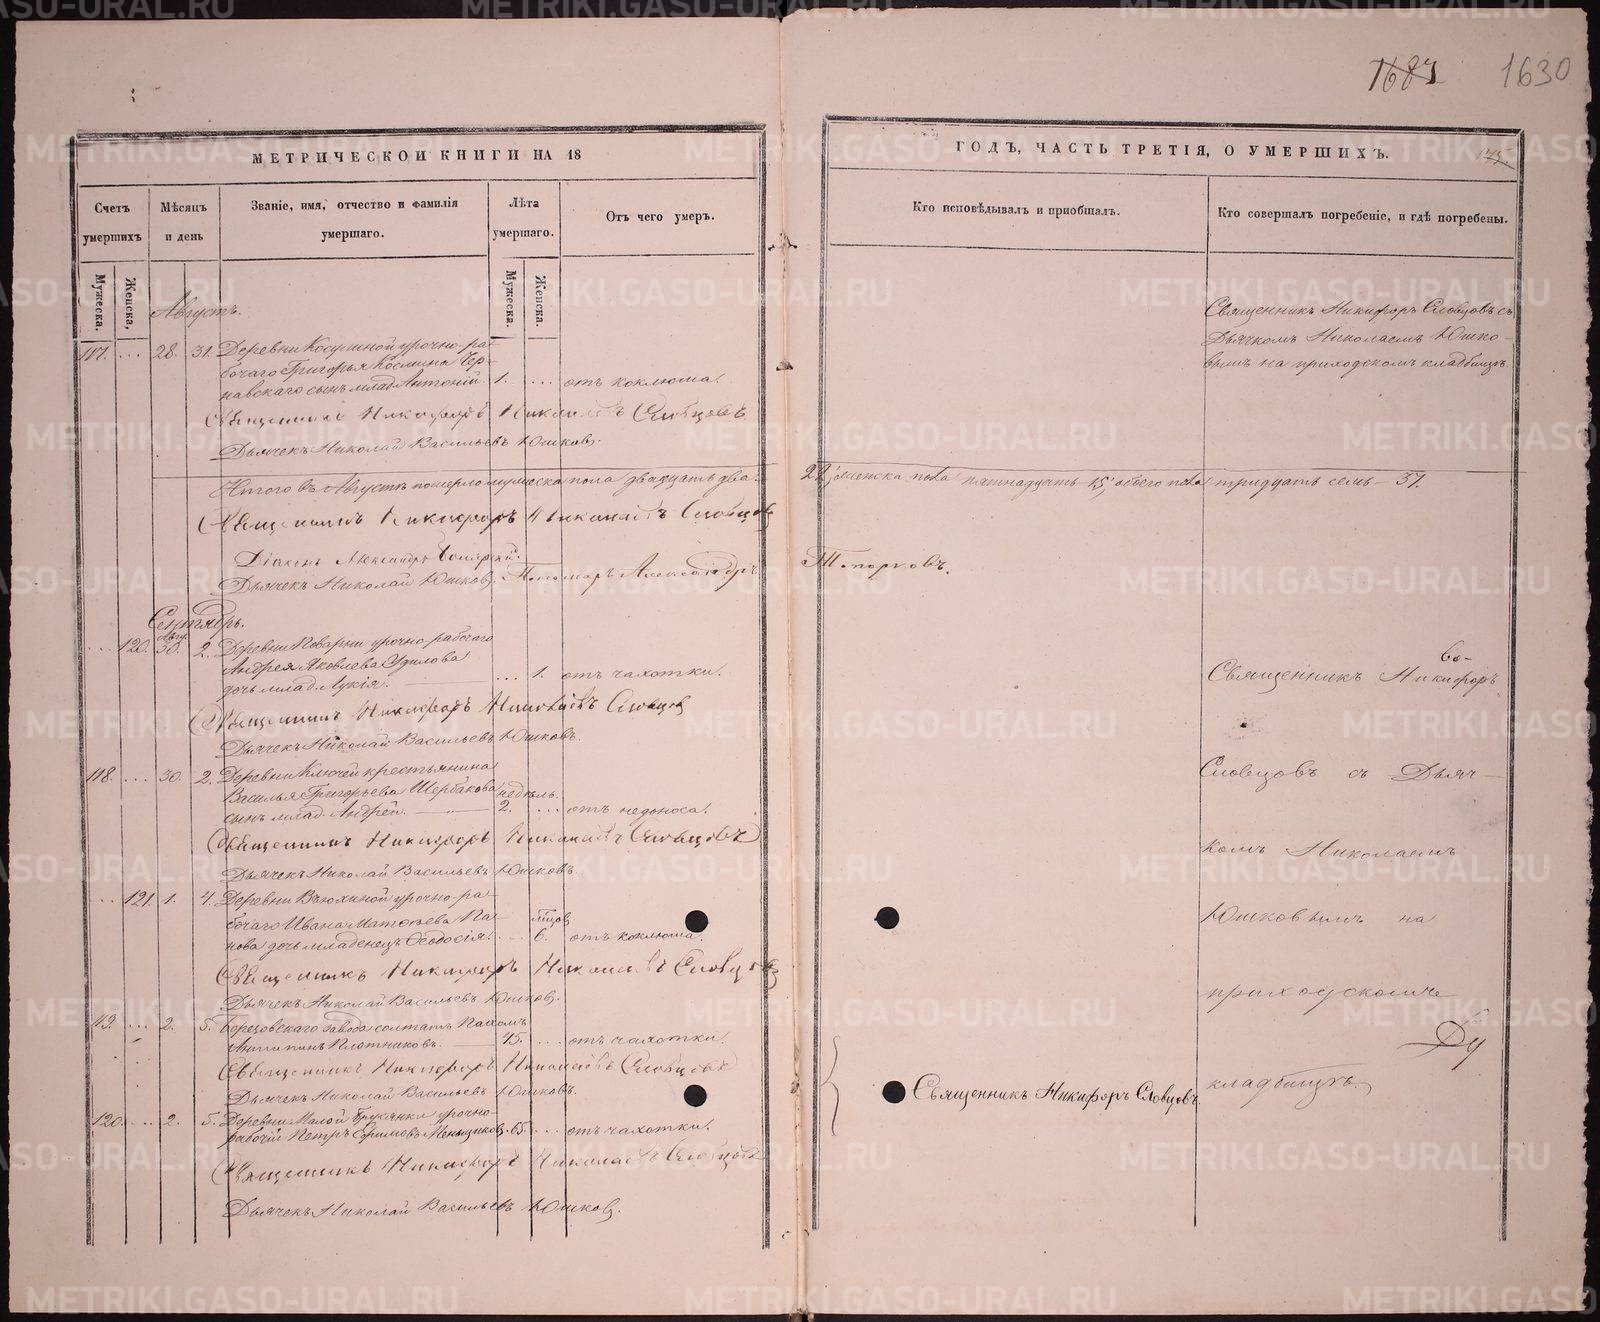 1630
МЕТРИЧЕСКОЙ КНИГИ НА 18
ГОДЪ, ЧАСТЬ ТРЕТІЯ, О УМЕРШИХЪ.
Счетъ умершихъ
Мужеска.
Женска.
Мѣсяцъ и день
Званіе, имя, отчество и фамилія умершаго.
Лѣта умершаго.
Мужеска.
Женска.
Отъ чего умеръ.
Кто исповѣдывалъ и пріобщалъ.
Кто совершалъ погребеніе, и гдѣ погребены.
Августъ.
117. ... 28. 31. Деревни Косулиной урочно-ра-
бочаго Григорья Космина Чер-
навскаго сынъ млад. Антоній 1. ... отъ коклюша.
Священникъ Никифоръ Словцовъ съ
Дьячкомъ Николаемъ Юшко-
вымъ на приходскомъ кладбищѣ.
Священникъ Никифоръ Николаевъ Словцовъ
Дьячекъ Николай Васильевъ Юшковъ.
Итого въ Августѣ померло мужеска пола двадцать два 22, женска пола пятнадцать 15, обоего пола тридцать семь 37.
Священникъ Никифоръ Николаевъ Словцовъ
Діаконъ Александръ
Дьячекъ Николай Юшковъ. Пономарь Александръ Топорковъ.
Сентябрь.
Авг.
... 120. 30. 2. Деревни Поварни урочно-рабочаго
Андрея Яковлева Удилова
дочь млад. Лукія. ... 1. отъ чахотки.
Священникъ Никифоръ Николаевъ Словцовъ
Дьячекъ Николай Васильевъ Юшковъ.
118. ... 30. 2. Деревни Ключей крестьянина
Василья Григорьева Щербакова недѣль.
сынъ млад. Андрей. 2. ... отъ недоноса.
Священникъ Никифоръ Николаевъ Словцовъ
Дьячекъ Николай Васильевъ Юшковъ.
... 121. 1. 4. Деревни Вьюхиной урочно-ра-
бочаго Ивана Матѳѣева Па- м-цовъ
нова дочь младенецъ Ѳеодосія. ... 6. отъ коклюша.
Священникъ Никифоръ Николаевъ Словцовъ
Дьячекъ Николай Васильевъ Юшковъ.
119. ... 2. 5. завода солтатъ Пахомъ
Антипинъ Плотниковъ. 45. ... отъ чахотки.
Священникъ Никифоръ Николаевъ Словцовъ
Дьячекъ Николай Васильевъ Юшковъ.
120. ... 2. 5. Деревни Малой Брусянки урочно-
рабочій Петръ Ефимовъ Меньщиковъ. 65. ... отъ чахотки.
Священникъ Никифоръ Николаевъ Словцовъ
Дьячекъ Николай Васильевъ Юшковъ.
Священникъ Никифоръ Словцовъ.
Священникъ Никифоръ
Словцовъ съ Дьяч-
комъ Николаемъ
Юшковымъ на
приходскомъ
кладбищѣ.
METRIKI.GASO-URAL.RU